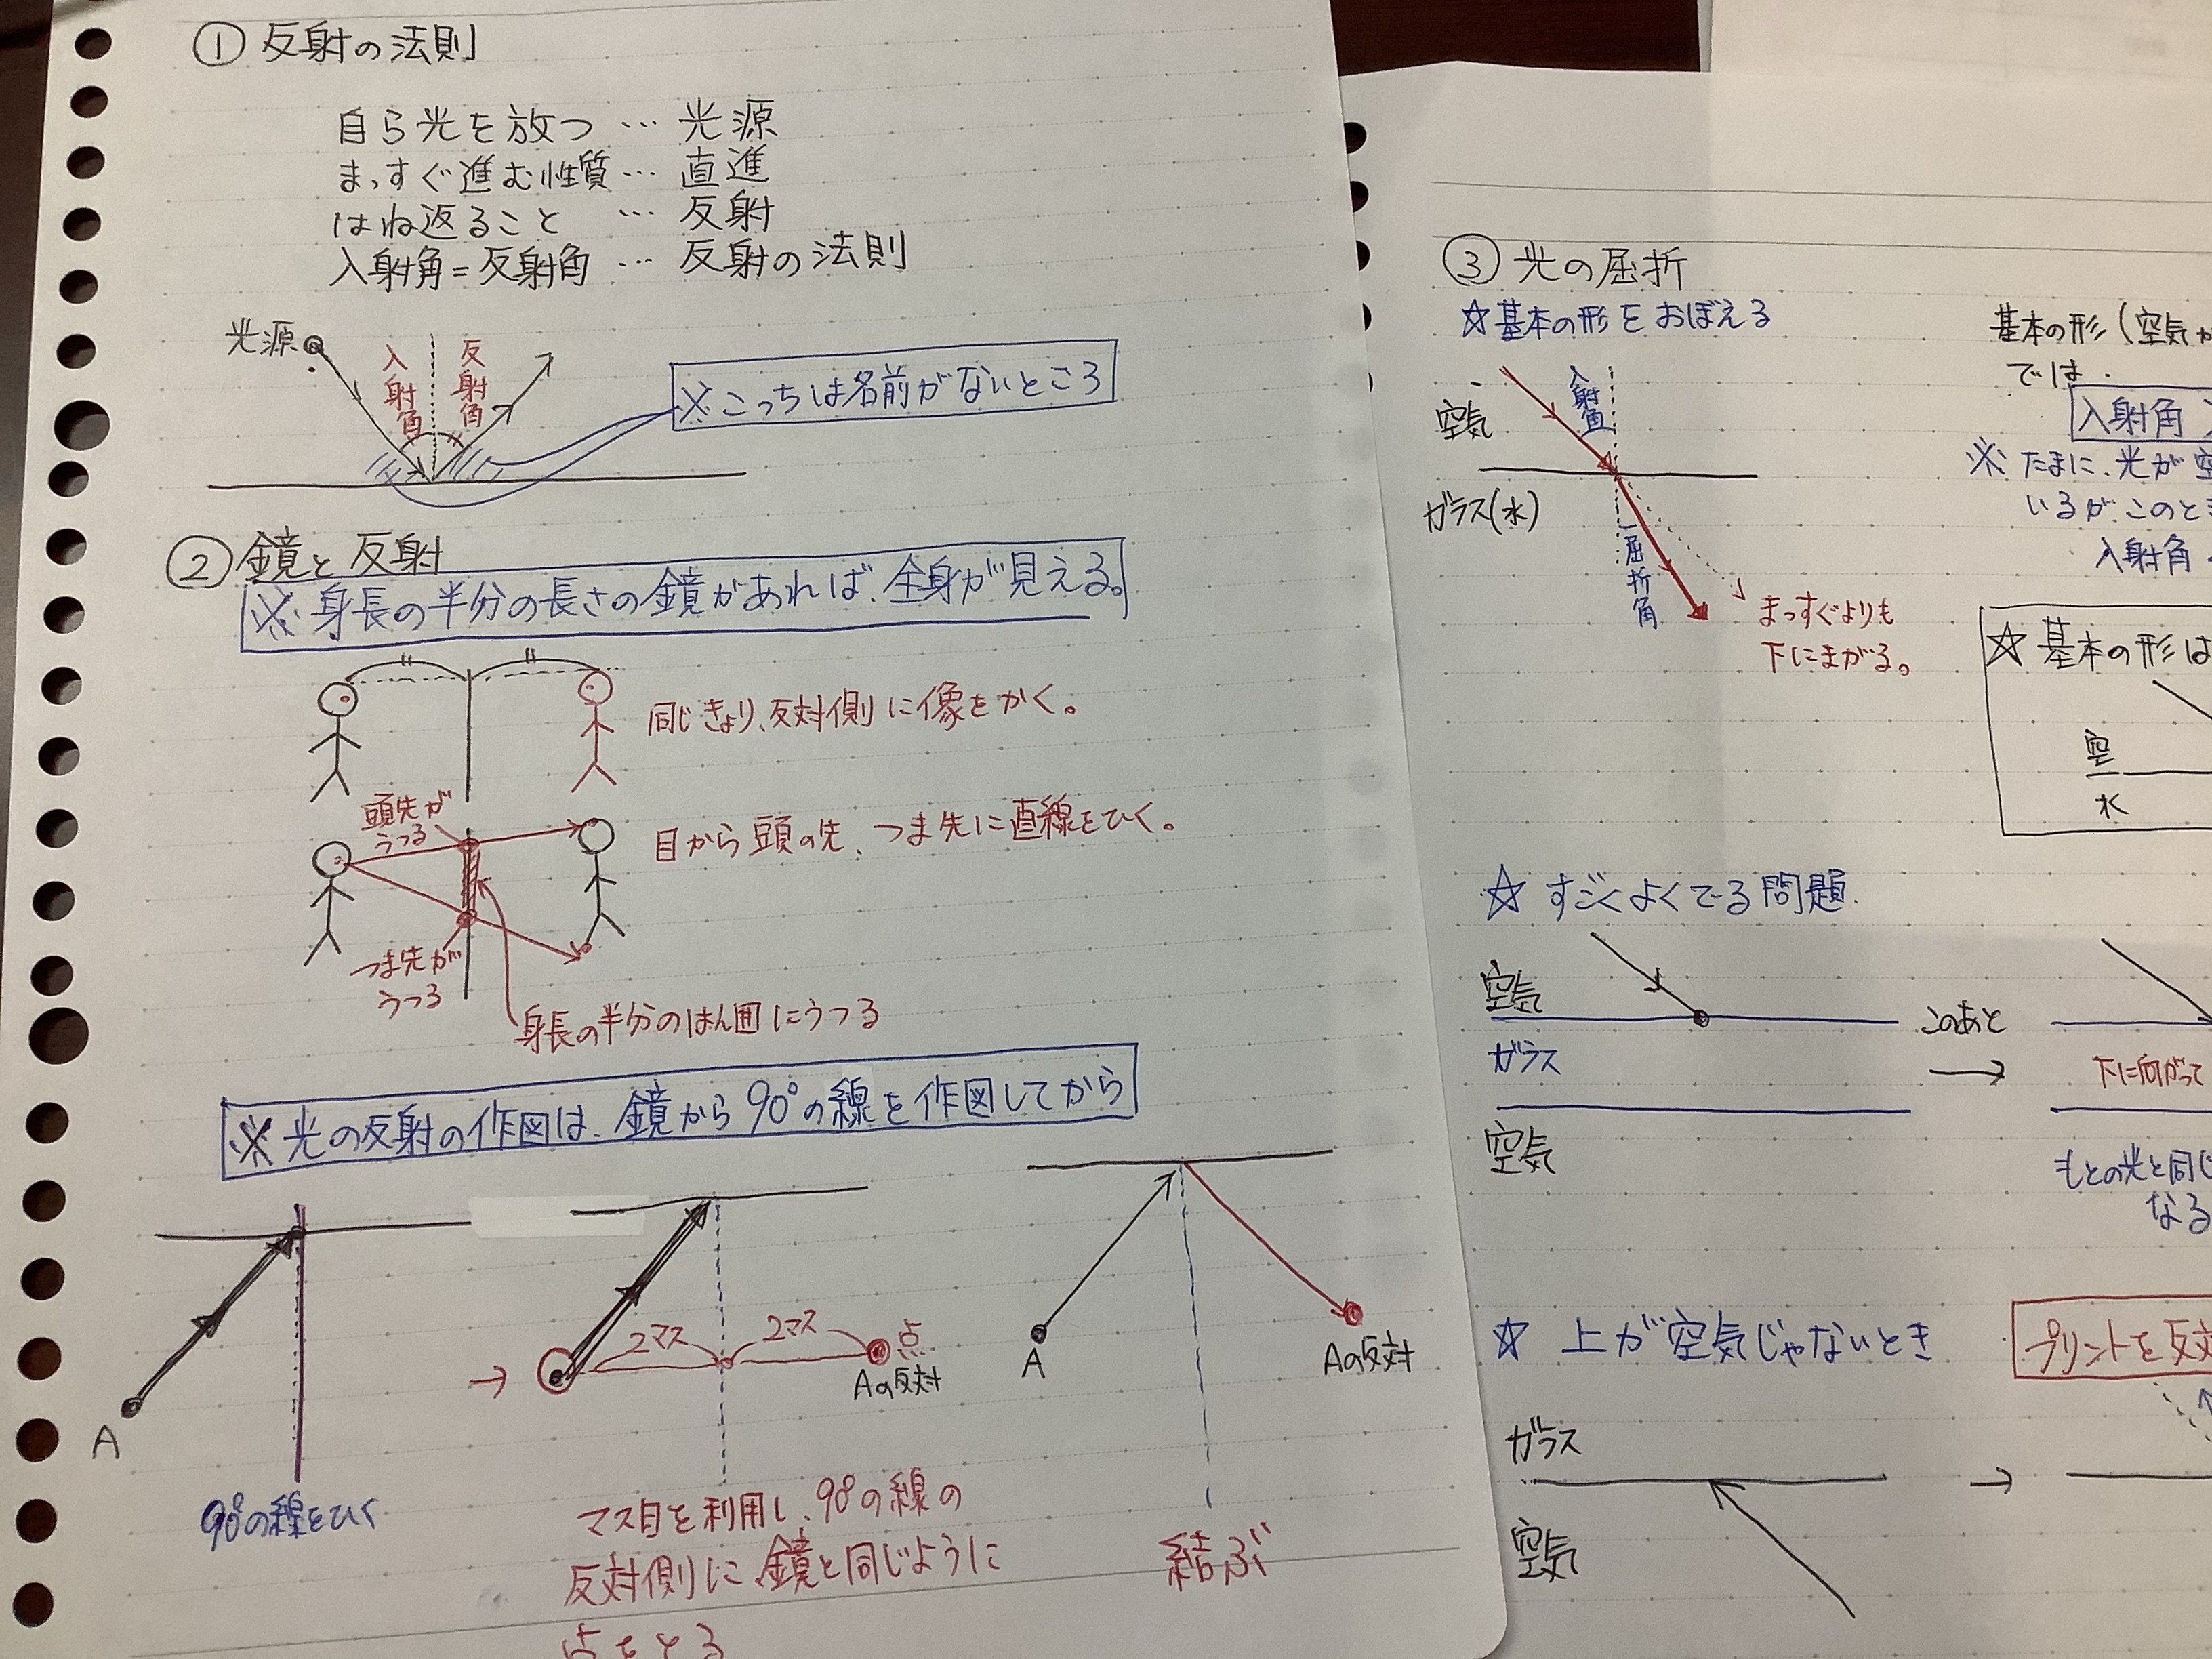 ① 反射の法則
自ら光を放つ … 光源
まっすぐ進む性質 … 直進
はね返ること … 反射
入射角=反射角 … 反射の法則
光源
入射角
反射角
※こっちは名前がないところ
② 鏡と反射
※身長の半分の長さの鏡があれば、全身が見える。
同じきょり、反対側に像をかく。
頭先が
うつる
目から頭の先、つま先に直線をひく。
つま先が
うつる
身長の半分のはん囲にうつる
※光の反射の作図は、鏡から90°の線を作図してから
A
90°の線をひく
→
2マス
2マス
点
Aの反対
マス目を利用し、90°の線の
反対側に鏡と同じように
点をとる
A
Aの反対
結ぶ
③ 光の屈折
☆基本の形をおぼえる
空気
入射角
ガラス(水)
屈折角
まっすぐよりも
下にまがる。
基本の形(空気か
では、
入射角 >
※たまに、光が空
いるが、このとき
入射角
☆基本の形は
空
水
☆すごくよくでる問題
空気
ガラス
空気
このあと
→
下に向かって
もとの光と同じ
なる
☆上が空気じゃないとき
プリントを反対
ガラス
空気
→